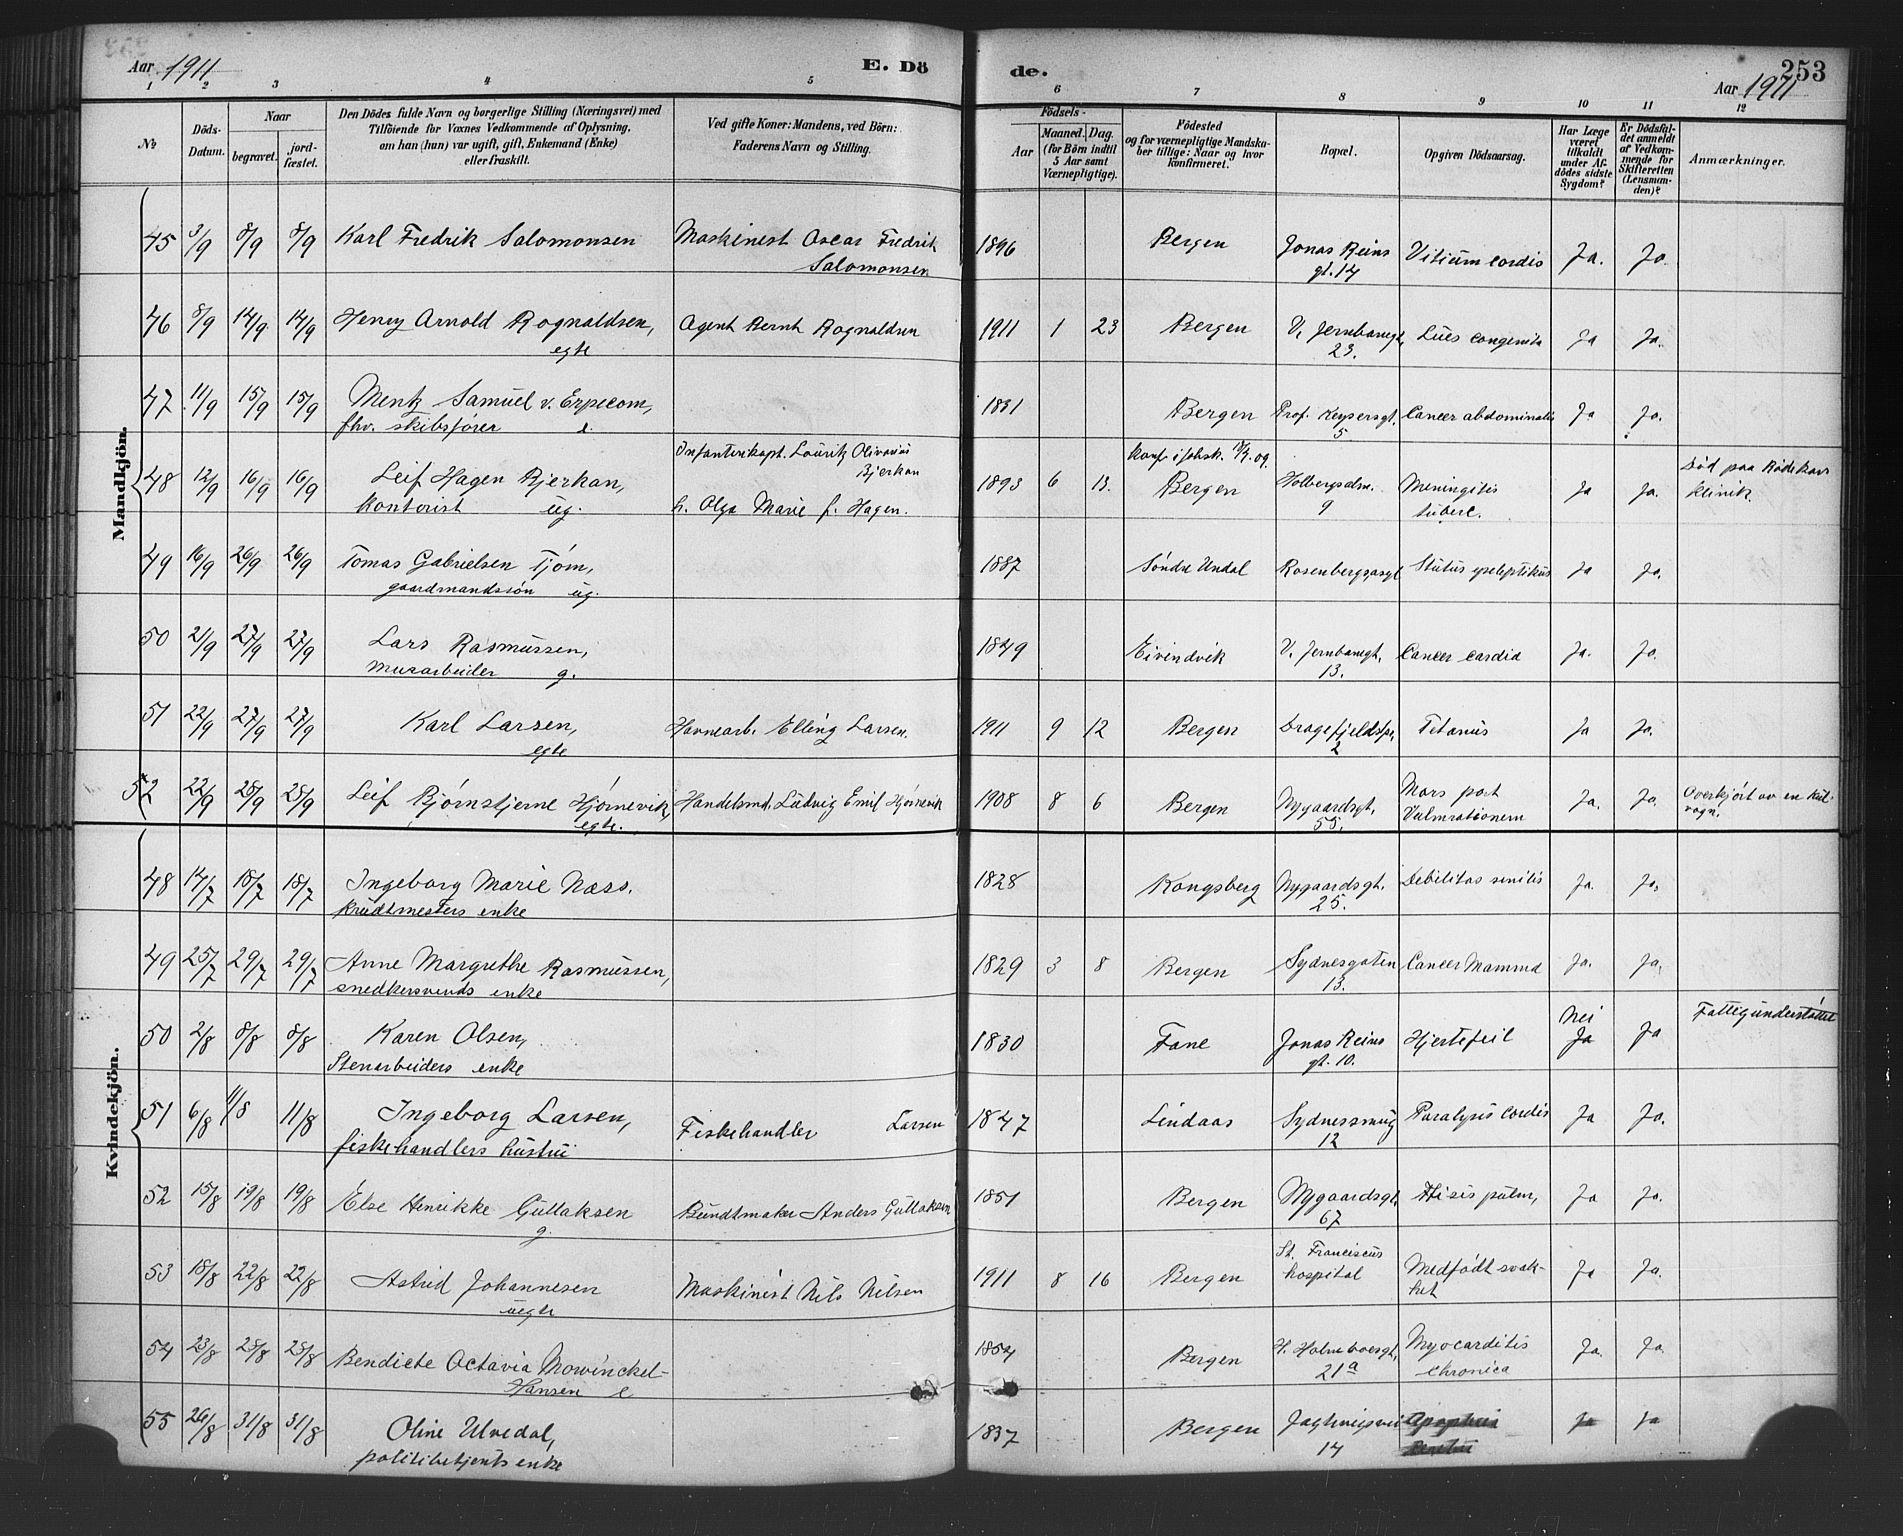 Aar 1911
E. Dö
de.
253
Aar 1911
1 2 3 4 5 6 7 8 9 10 11 12
№
Döds-Datum.
Naar
begravet.
jord-fæstet.
Den Dödes fulde Navn og borgerlige Stilling (Næringsvei) med
Tilföiende for Voxnes Vedkommende af Oplysning,
om han (hun) var ugift, gift, Enkemand (Enke)
eller fraskilt.
Ved gifte Koner: Mandens, ved Börn:
Faderens Navn og Stilling.
Födsels-
Aar
Maaned. Dag.
(for Börn indtil
5 Aar samt
Værnepligtige).
Födested
og for værnepligtige Mandska-
ber tillige: Naar og hvor
konfirmeret.
Bopæl.
Opgiven Dödsaarsag.
Har Læge
været
tilkaldt
under Af-
dödes sidste
Sygdom?
Er Dödsfal-
det anmeldt
af Vedkom-
mende for
Skifteretten
(Lensman-
den)?
Anmærkninger.
Mandkjön.
45 3/9 8/9 8/9 Karl Fredrik Salomonsen Maskinist Oscar Fredrik
Salomonsen
1896 Bergen Jonas Reins
gt. 14 Vitium cordis Ja. Ja
46 8/9 14/9 14/9 Henry Arnold Rognaldsen,
egte Agent Bernt Rognaldsen
1911 1 23 Bergen V. Jernbanegt.
23. Lues congenita Ja Ja.
47 11/9 15/9 15/9 Mentz Samuel v. Erpecom,
fhv. skibsfører e.
1831 Bergen Prof. Keysersgt.
5 Cancer abdominalis Ja Ja.
48 12/9 16/9 16/9 Leif Hagen Bjerkan,
kontorist ug.
Infanterikapt. Lauritz Olivarius
Bjerkan
h. Olga Marie f. Hagen.
1893 6 13. Bergen Holbergsalm.
9 Meningitis
tuberc. Ja Ja. Død paa Rødekors
klinik.
49 16/9 26/9 26/9 Tomas Gabrielsen Tjøm,
gaardmandssøn ug.
1887 Søndre Undal Rosenbergsgt Ja Ja.
50 21/9 27/9 27/9 Lars Rasmussen,
murarbeider g.
1849 Eivindvik V. Jernbanegt.
13. Cancer cardia Ja. Ja.
51 22/9 27/9 27/9 Karl Larsen,
egte Havnearb. Elling Larsen.
1911 9 12 Bergen Dragefjeldstr.
2 Tetanus Ja Ja.
52 22/9 28/9 28/9 Leif Bjørnstjerne Hjørnevik,
egte. Handelsmd. Ludvig Emil Hjørnevik
1908 8 6 Bergen Nygaardsgt.
55. Mors post
Vulnerationem Ja. Ja. Overkjørt av en kul-
vogn.
Kvindekjön.
48 14/7 18/7 18/7 Ingeborg Marie Næss.
krudtmesters enke
1828 Kongsberg Nygaardsgt.
25. Debilitas senilis Ja. Ja.
49 25/7 29/7 29/7 Anne Margrethe Rasmussen,
snedkersvends enke
1829 3 8 Bergen Sydnesgaten
13. Cancer Mamma Ja. Ja.
50 2/8 8/8 8/8 Karen Olsen,
Stenarbeiders enke
1830 Fane Jonas Reins
gt. 10. Hjertefeil Nei
Ja Ja Fattigunderstøttet
51 6/8 11/8 11/8 Ingeborg Larsen,
fiskehandlers hustru Fiskehandler Larsen
1847 Lindaas Sydnessmug
12 Paralysis cordis Ja Ja.
52 15/8 19/8 19/8 Else Henrikke Gullaksen
g. Bundtmaker Anders Gullaksen
1851 Bergen Nygaardsgt.
67 Ftisis pulm, Ja Ja.
53 18/8 22/8 22/8 Astrid Johannesen
uegte Maskinist Nils Nilsen
1911 8 16 Bergen St. Franciscus
hospital Medfødt svak-
het Ja Ja.
54 23/8 28/8 28/8 Bendicte Octavia Mowinckel-
Hansen e
1854 Bergen H. Holmboesgt.
21a Myocarditis
Chronica Ja. Ja.
55 26/8 31/8 31/8 Oline Ulvedal,
politibetjents enke
1837 Bergen
14 Ja Ja